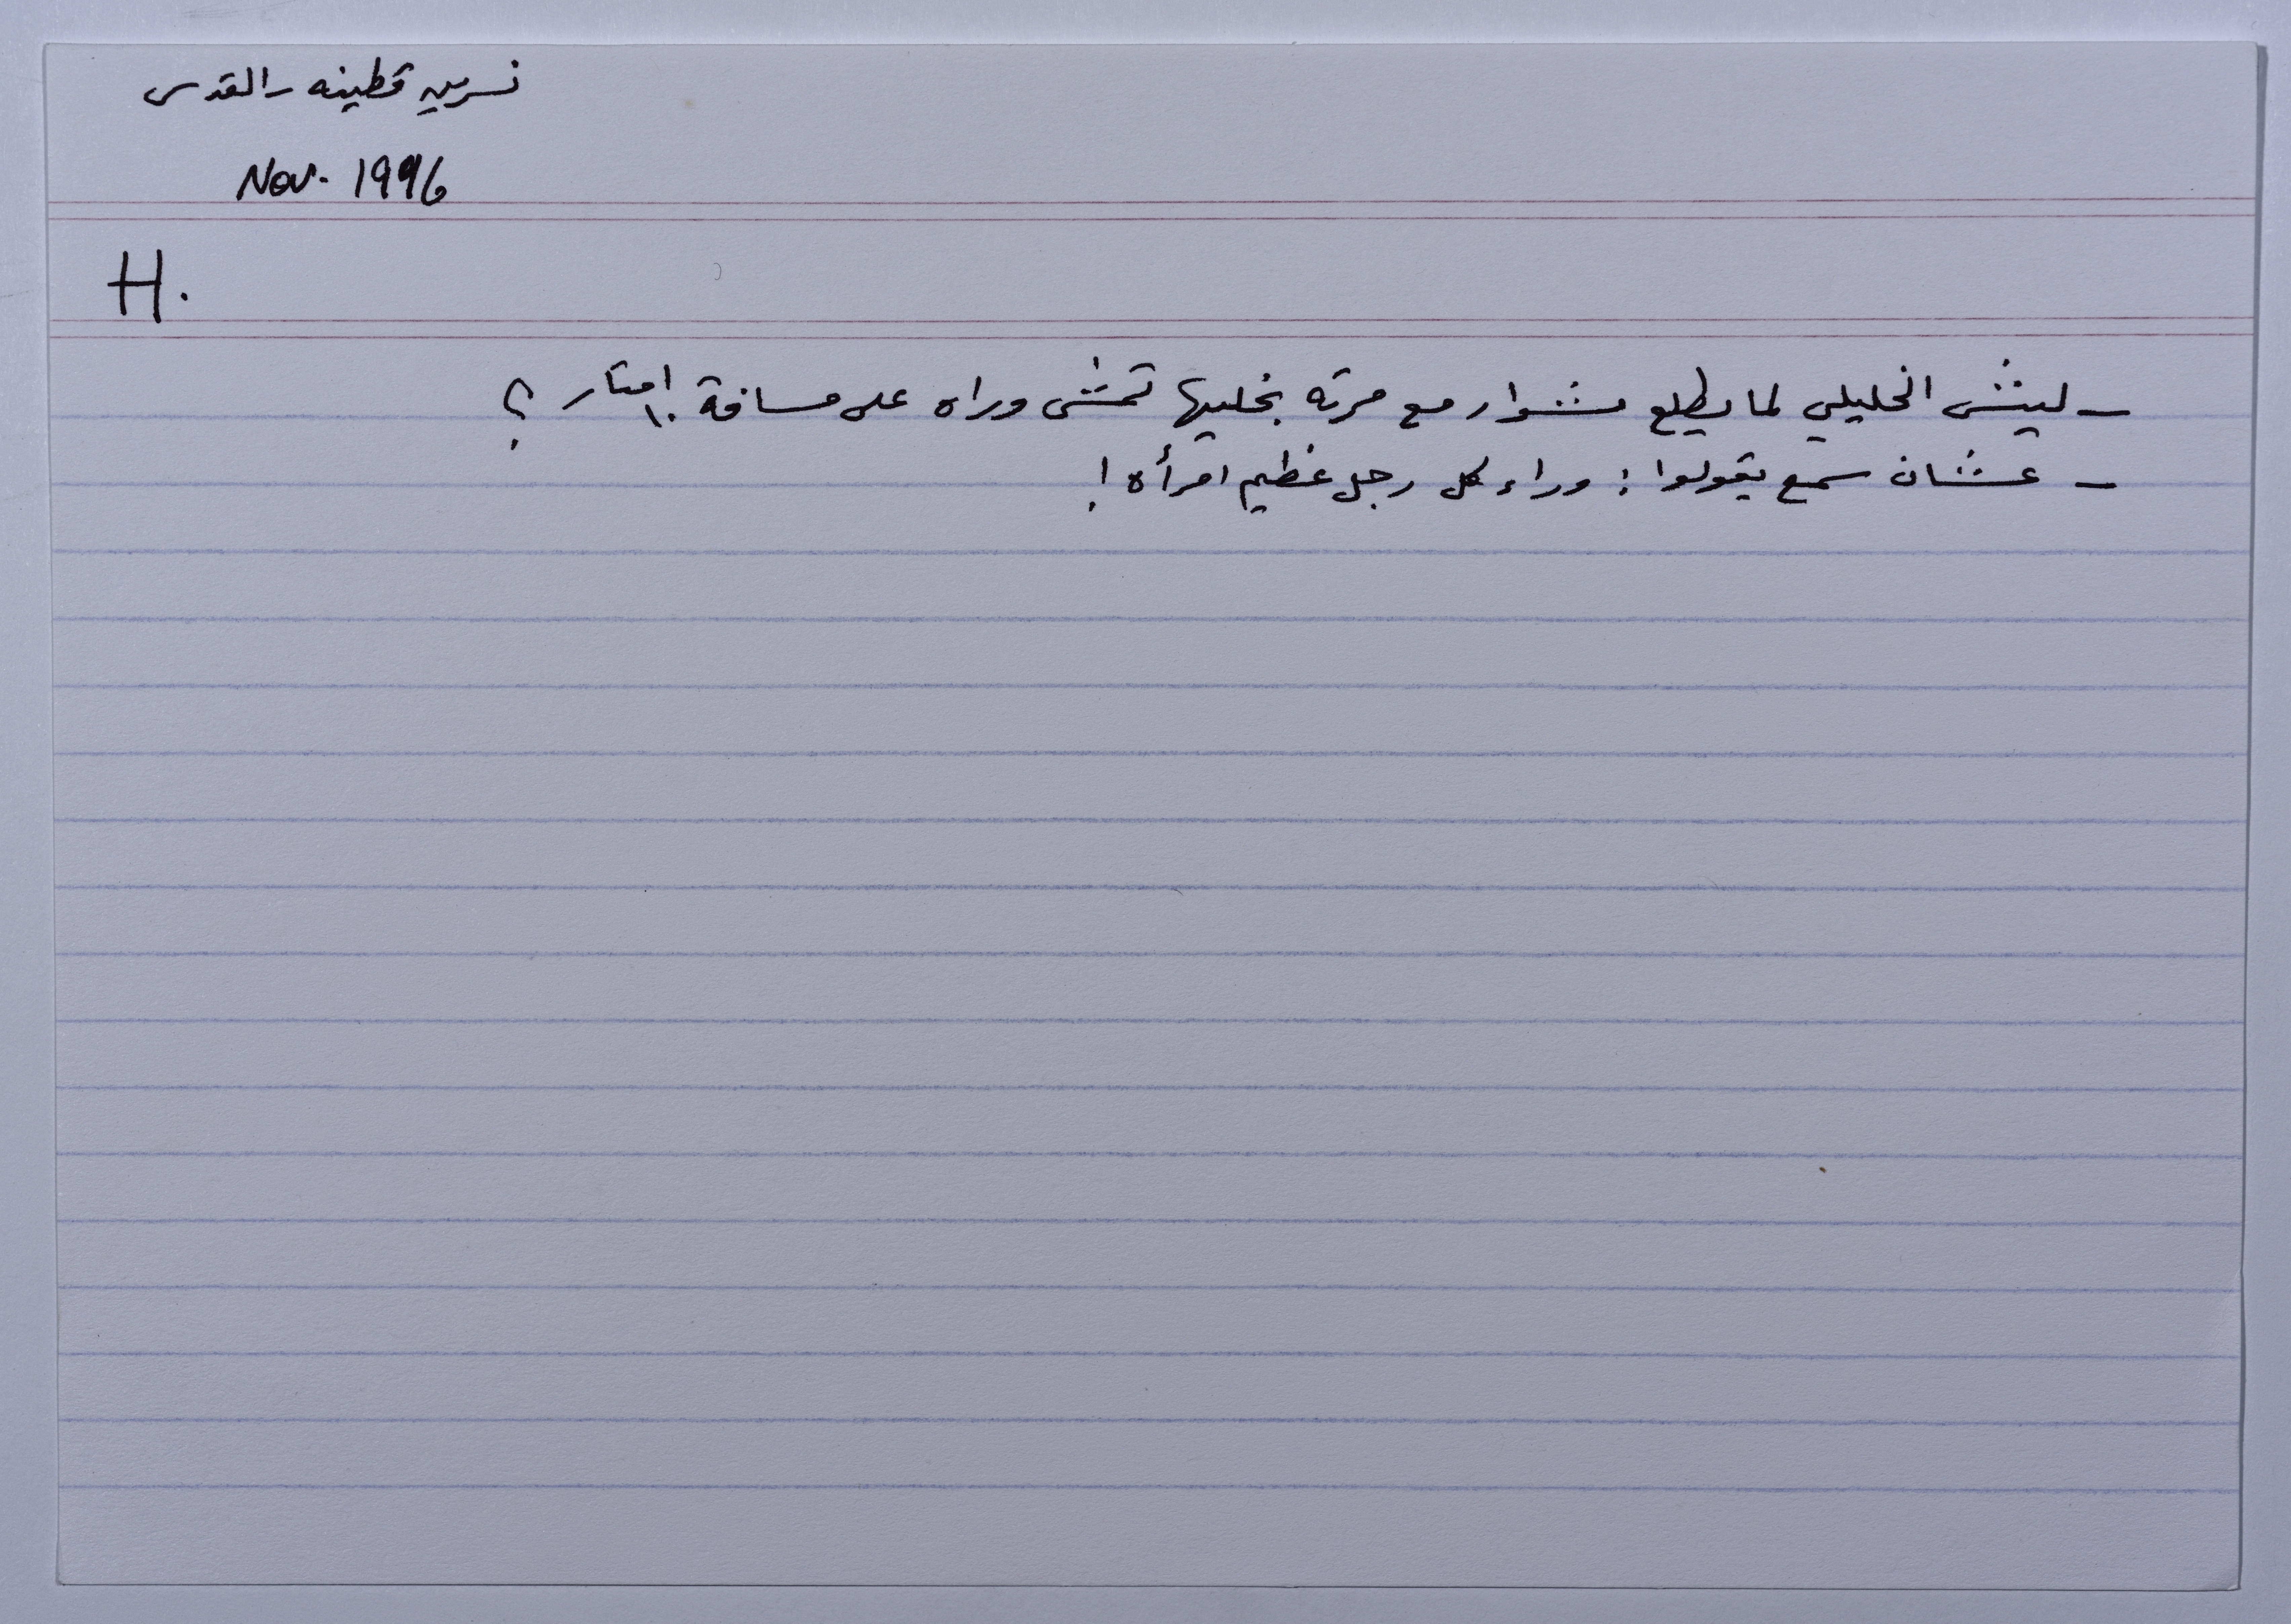 نسرين قطينه - القدس
Nov. 1996
H.
- ليش الخليلي لما يطلع مشوار مع مرته بخليها تمشي وراه على مسافة ١٠ امتار ؟
- عشان سمع يقولوا : وراء كل رجل عظيم امرأه !